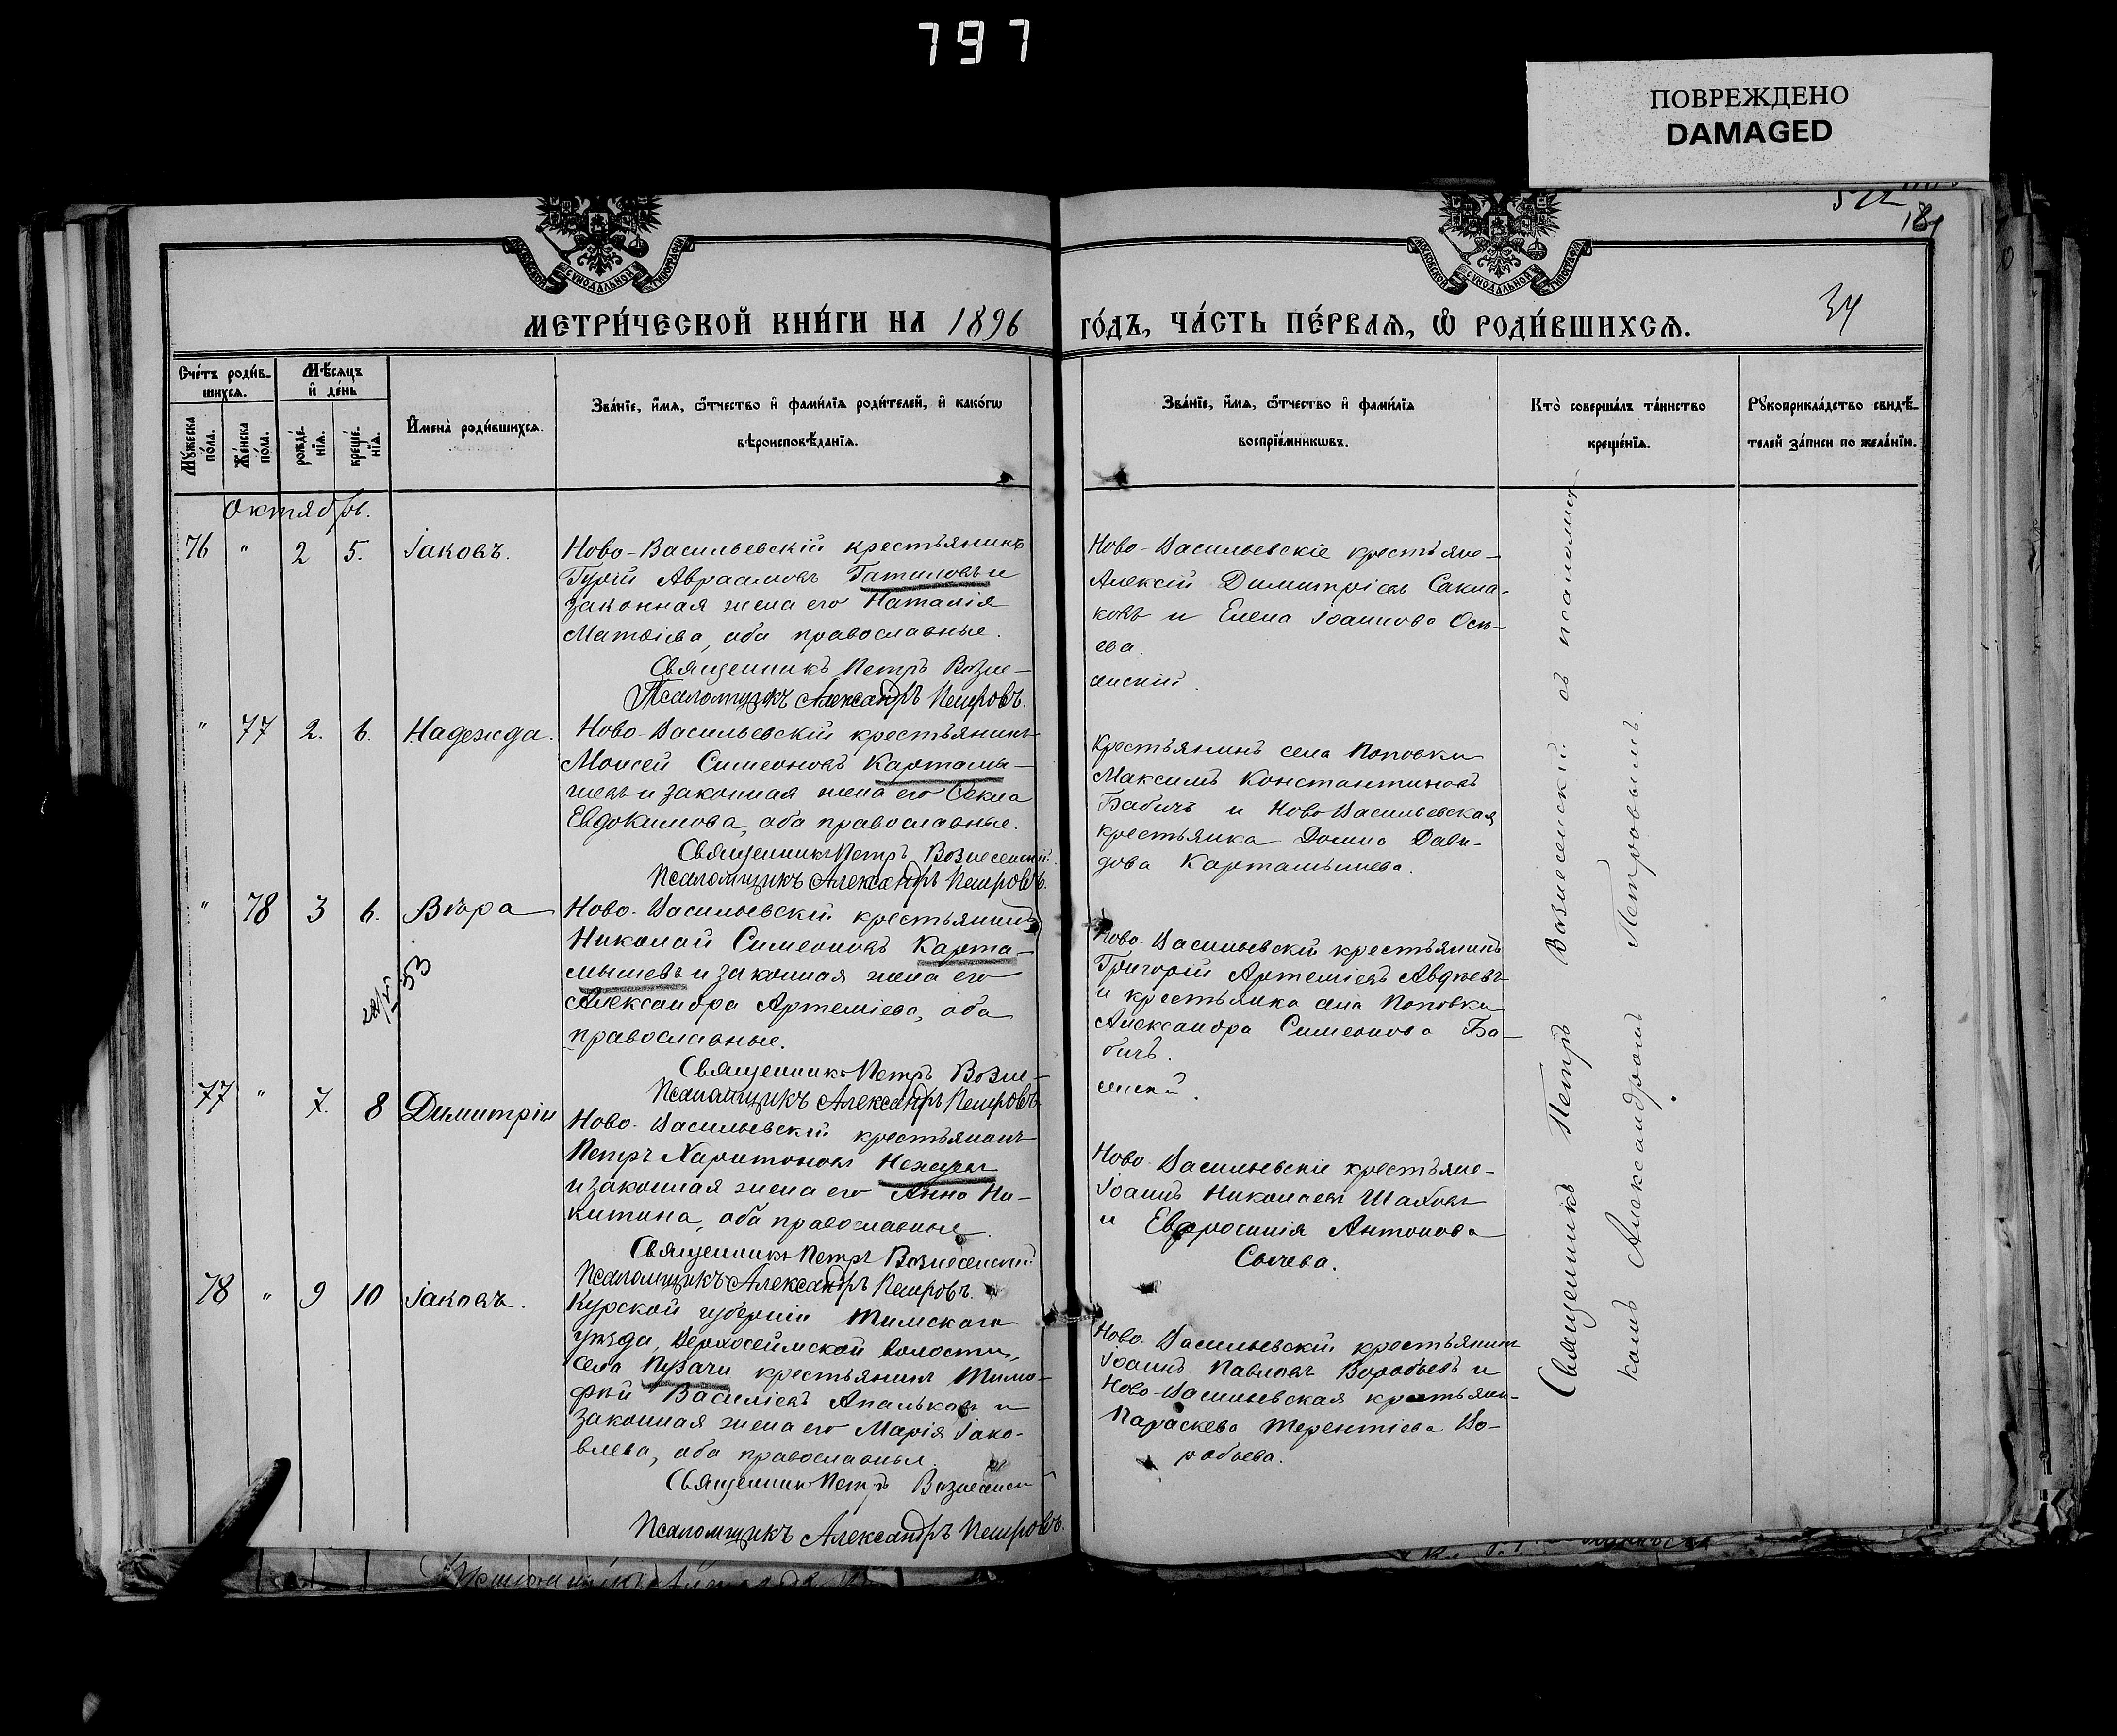 797
ПОВРЕЖДЕНО
DAMAGED
181
34
МОСКОВСКОЙ СУНОДАЛЬНОЙ ТИПОГРАФІИ
МОСКОВСКОЙ СУНОДАЛЬНОЙ ТИПОГРАФІИ
МЕТРИ́ЧЕСКОЙ КНИ́ГИ НА 1896
ГО́ДЪ, ЧА́СТЬ ПЕ́РВАЯ, Ѽ РОДИ́ВШИХСЯ.
Сче́тъ роди́в-
шихся.
Мꙋ́жеска по́ла.
Же́нска по́ла.
Мѣ́сяцъ
и҆ де́нь
рожде́-
нїѧ.
креще́-
нїѧ.
И҆мена̀ роди́вшихсѧ.
Зва́нїе, и҆́мѧ, ѻ҆́тчество и҆ фами́лїѧ роди́телей, и҆ како́гѡ
вѣроисповѣ́данїѧ.
Зва́нїе, и҆́мѧ, ѻ҆́тчество и҆ фами́лїѧ
воспрїе́мникѡвъ.
Кто̀ соверша́лъ та́инство
креще́нїѧ.
Рꙋкоприкла́дство свидѣ́-
телей за́писи по жела́нїю.
Октябрь.
76 " 2 5. Іаковъ.
Ново-Васильевскій крестьянинъ
Гурій Авраамовъ Гатиловъ и
законная жена его Наталія
Матѳіева, оба православные.
Священникъ Петръ Возне-
Псаломщикъ Александръ Петровъ.
Ново-Васильевскіе крестьяне-
Алексій Димитріевъ Сакла-
ковъ и Елена Іоаннова
ева.
сенскій.
" 77 2. 6. Надежда.
Ново-Васильевскій крестьянинъ
Моисей Симеоновъ Картамы-
шевъ и законная жена его Ѳекла
Евдокимова, оба православные.
Священникъ Петръ Вознесенскій.
Псаломщикъ Александръ Петровъ.
Крестьянинъ села Поповки
Максимъ Константиновъ
Бабичъ и Ново-Васильевская
крестьянка Домна Дави-
дова Картамышева.
" 78 3 6. Вѣра
53
Ново-Васильевскій крестьянинъ
Николай Симеоновъ Карта-
мышевъ и законная жена его
Александра Артеміева, оба
православные.
Священникъ Петръ Возне-
Псаломщикъ Александръ Петровъ
Ново-Васильевскій крестьянинъ
Григорій Артеміевъ Авдѣевъ
и крестьянка села Поповки
Александра Симеонова Ба-
бичъ.
сенскій.
77 " 7. 8 Димитрій
Ново-Васильевскій крестьянинъ
Петръ Харитоновъ
и законная жена его Анна Ни-
китина, оба православные.
Священникъ Петръ Вознесенскій
Псаломщикъ Александръ Петровъ.
Ново-Васильевскіе крестьяне-
Іоаннъ Николаевъ Шаховъ
и Евфросинія Антонова
Сычева.
78 " 9 10 Іаковъ.
Курской губерніи Тимскаго
уѣзда, Верхосеймской волости,
села Пузачи крестьянинъ Тимо-
фей Василіевъ Апальковъ и
законная жена его Марія Іако-
влева, оба православные.
Священникъ Петръ Вознесенскій
Псаломщикъ Александръ Петровъ.
Ново-Васильевскій крестьянинъ
Іоаннъ Павловъ Воробьевъ и
Ново-Васильевская крестьян-
Параскева Терентіева Во-
робьева.
Священникъ Петръ Вознесенскій съ псаломщи-
комъ Александромъ Петровымъ.